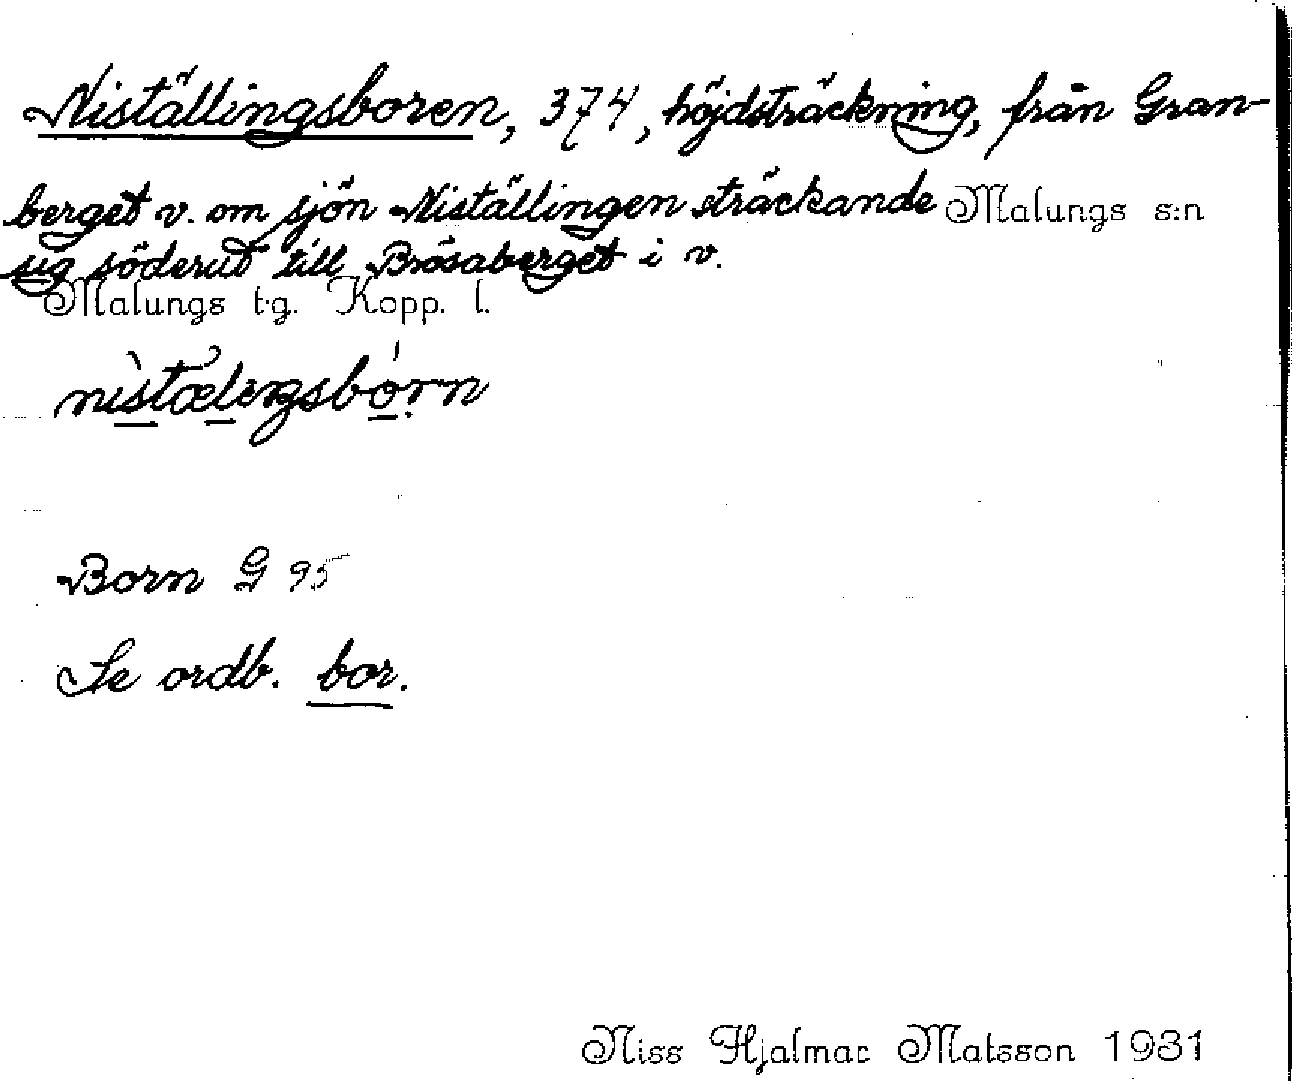 Niställingsboren, 374, höjdsträckning, från Gran-
berget v. om sjön Niställingen sträckande Malungs s:n
sig söderut till Brösaberget i v.
Malungs t.g. Kopp. l.
Born G 95
Se ordb. bor.
Niss Hjalmar Matsson 1931